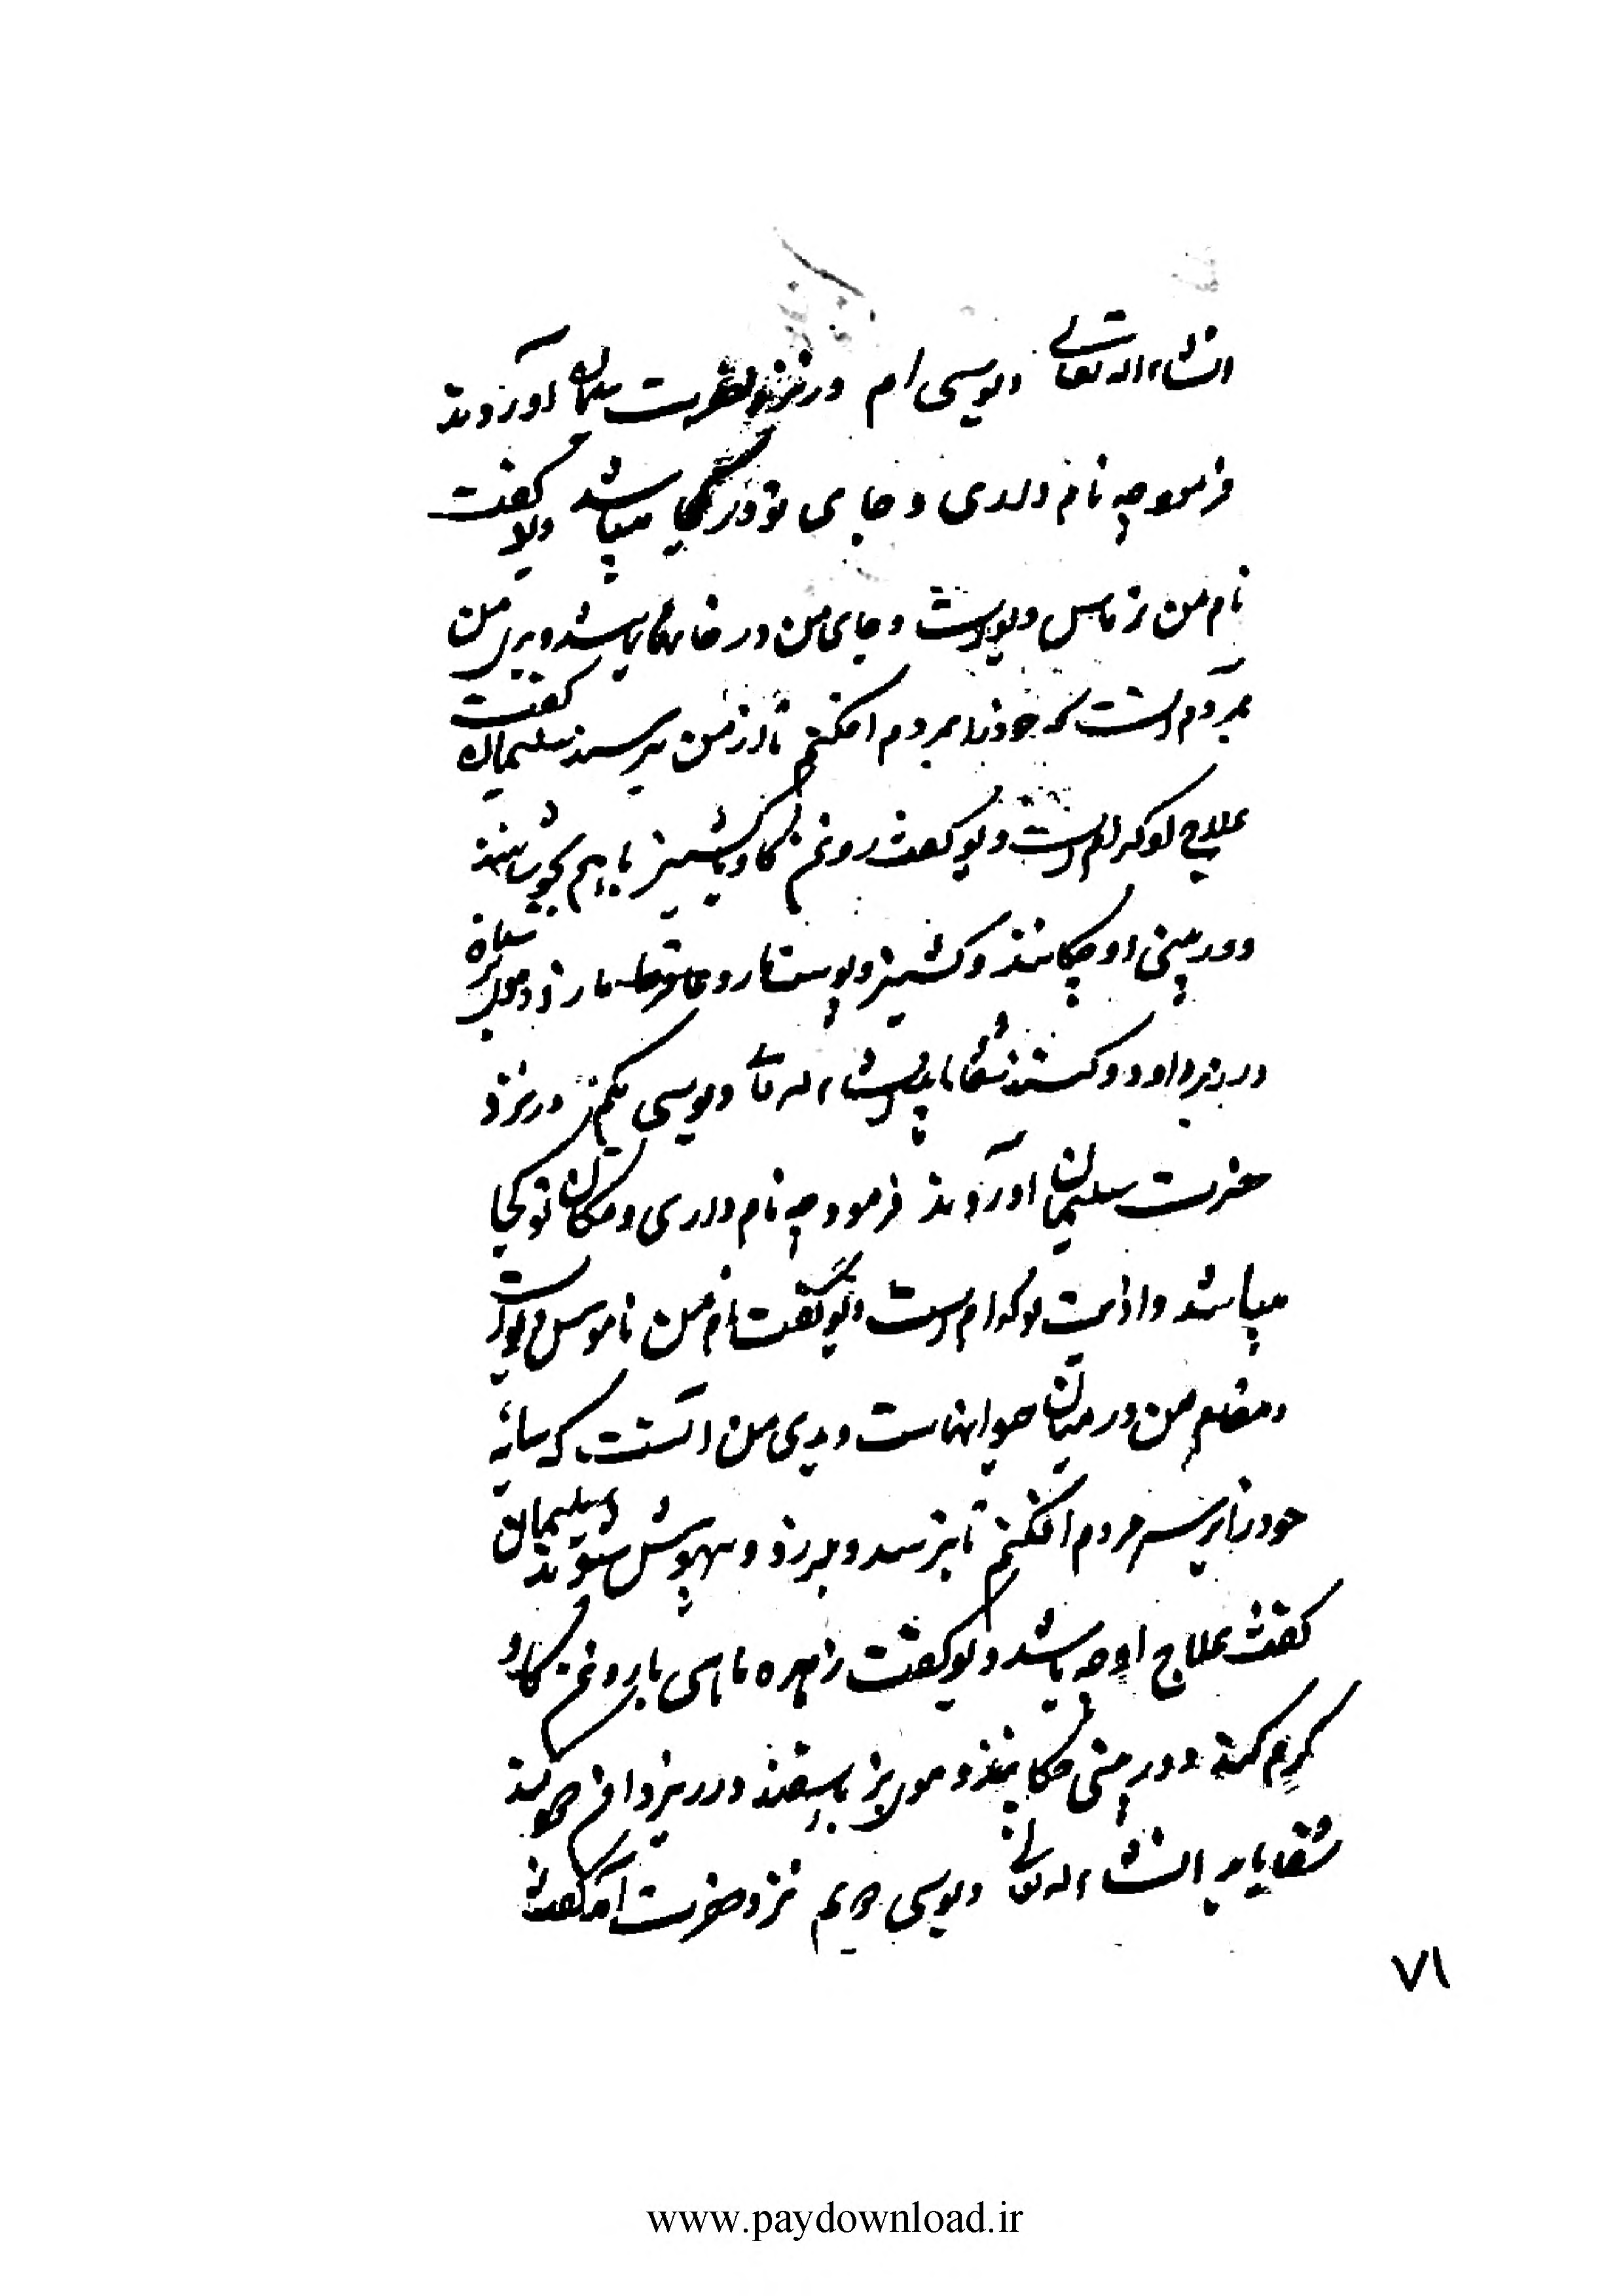 انشاء اله تعالی دیوسی ام در نزد حضرت سلیمان آوردند
فرمود چه نام داری و جای تو در کجا میباشد دیو گفت
نام من زماس دیو است و جای من در خانها باشد و بدی من
بمردم است که خود را بمردم افکنم تا از من بترسند سلیمان گفت
علاج تو کدام است دیو گفت روغن گاو با کشنیز با هم بجوشانند
و در بینی او چکانند و کشنیز و پوست مار و موی بز سیاه
در زیر او دود کنند شفا یابد انشاء اله تعالی دیوسی یکم در نزد
حضرت سلیمان آوردند فرمود چه نام داری و مکان تو کجا
میباشد و اذیت تو کدام است دیو گفت نام من ناموس دیو است
و مقام من در میان حیوانهاست و بدی من انست که سایه
خود را بر سر مردم افکنم تا بترسد و بلرزد و بیهوش شوند سلیمان
گفت علاج او چه باشد دیو گفت زهره ماهی با روغن گاو
گرم کند و در بینی چکانند و موی بز با سپند در زیر دامن
شفا یابد انشاء اله تعالی دیوسی دویم نزد حضرت آمد گفت
۷۱
www.paydownload.ir